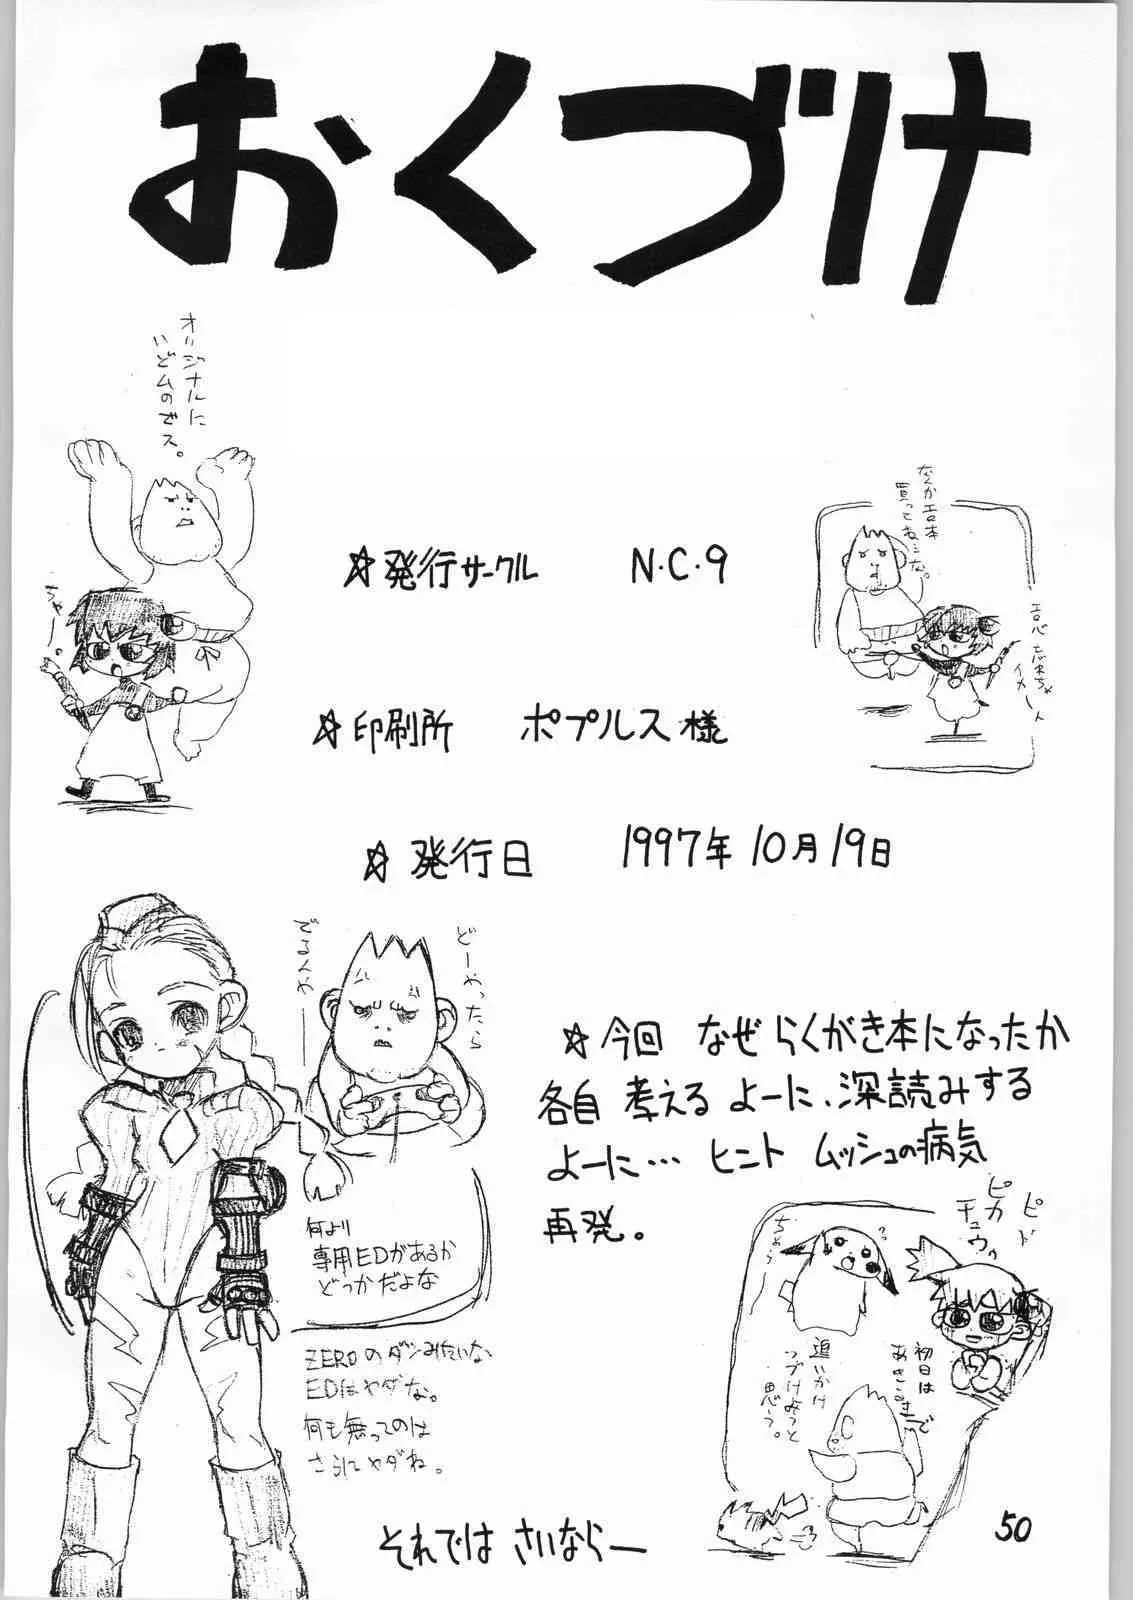 おくづけ
オリジナルに
いどムのでス。
ちゃー。
☆発行サークル N・C・9
なんかエロ本
買ってねェな。
☆印刷所 ポプルス様
☆発行日 1997年10月19日
どーやったら
でるんかー
何より
専用EDがあるか
どっかだよな
ZEROのダンみたいな
EDはヤダな。
何も無ってのは
さらにヤダね。
☆今回 なぜ らくがき本になったか
各自 考える よーに、深読みする
よーに… ヒント ムッシュの病気
再発。
ピカ
チュウゥ
ちゃらー
初日は
あきるまで
追いかけ
つづけようと
思う。
それでは さいならー
50